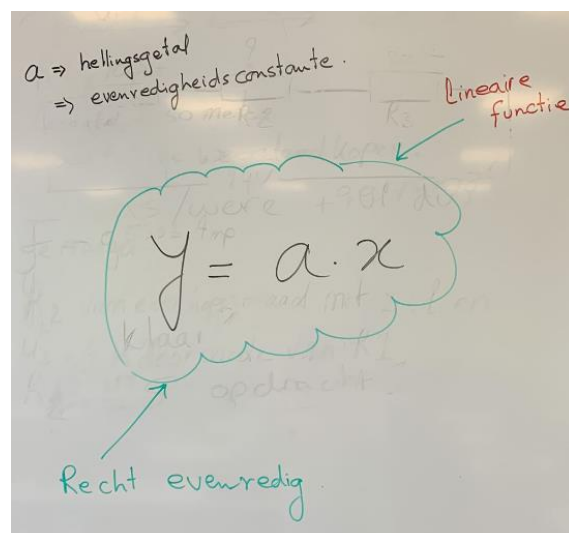 a ⇒ hellingsgetal
⇒ evenredigheidsconstante.
Lineaire
functie
y = a · x
klaar
opdracht
Recht evenredig